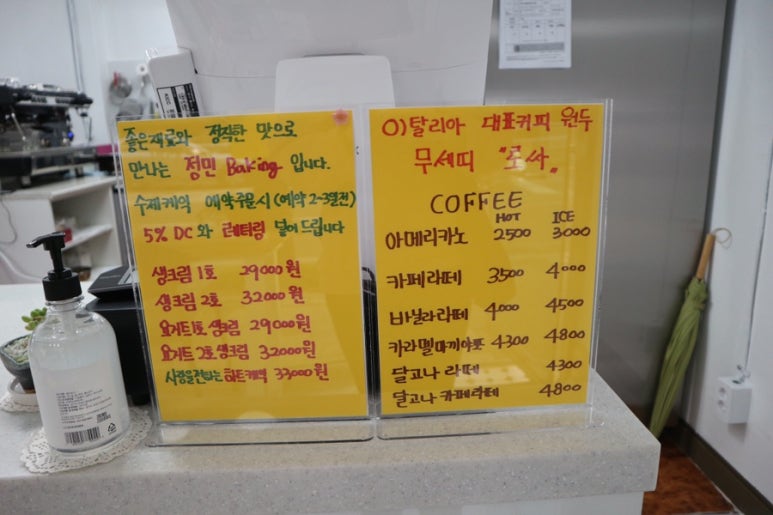 좋은재료와 정직한 맛으로
만나는 정민 Baking 입니다.
수제케익 예약주문시 (예약 2~3일전)
5% DC와 레터링 넣어드립니다
생크림 1호 29000원
생크림 2호 32000원
요거트1호 생크림 29000원
요거트 2호 생크림 32000원
사랑을전하는 하트케익 33000원
이탈리아 대표커피 원두
무세띠 "로싸"
COFFEE
HOT ICE
아메리카노 2500 3000
카페라떼 3500 4000
바닐라라떼 4000 4500
카라멜마끼아또 4300 4800
달고나 라떼 4300
달고나 카페라떼 4800